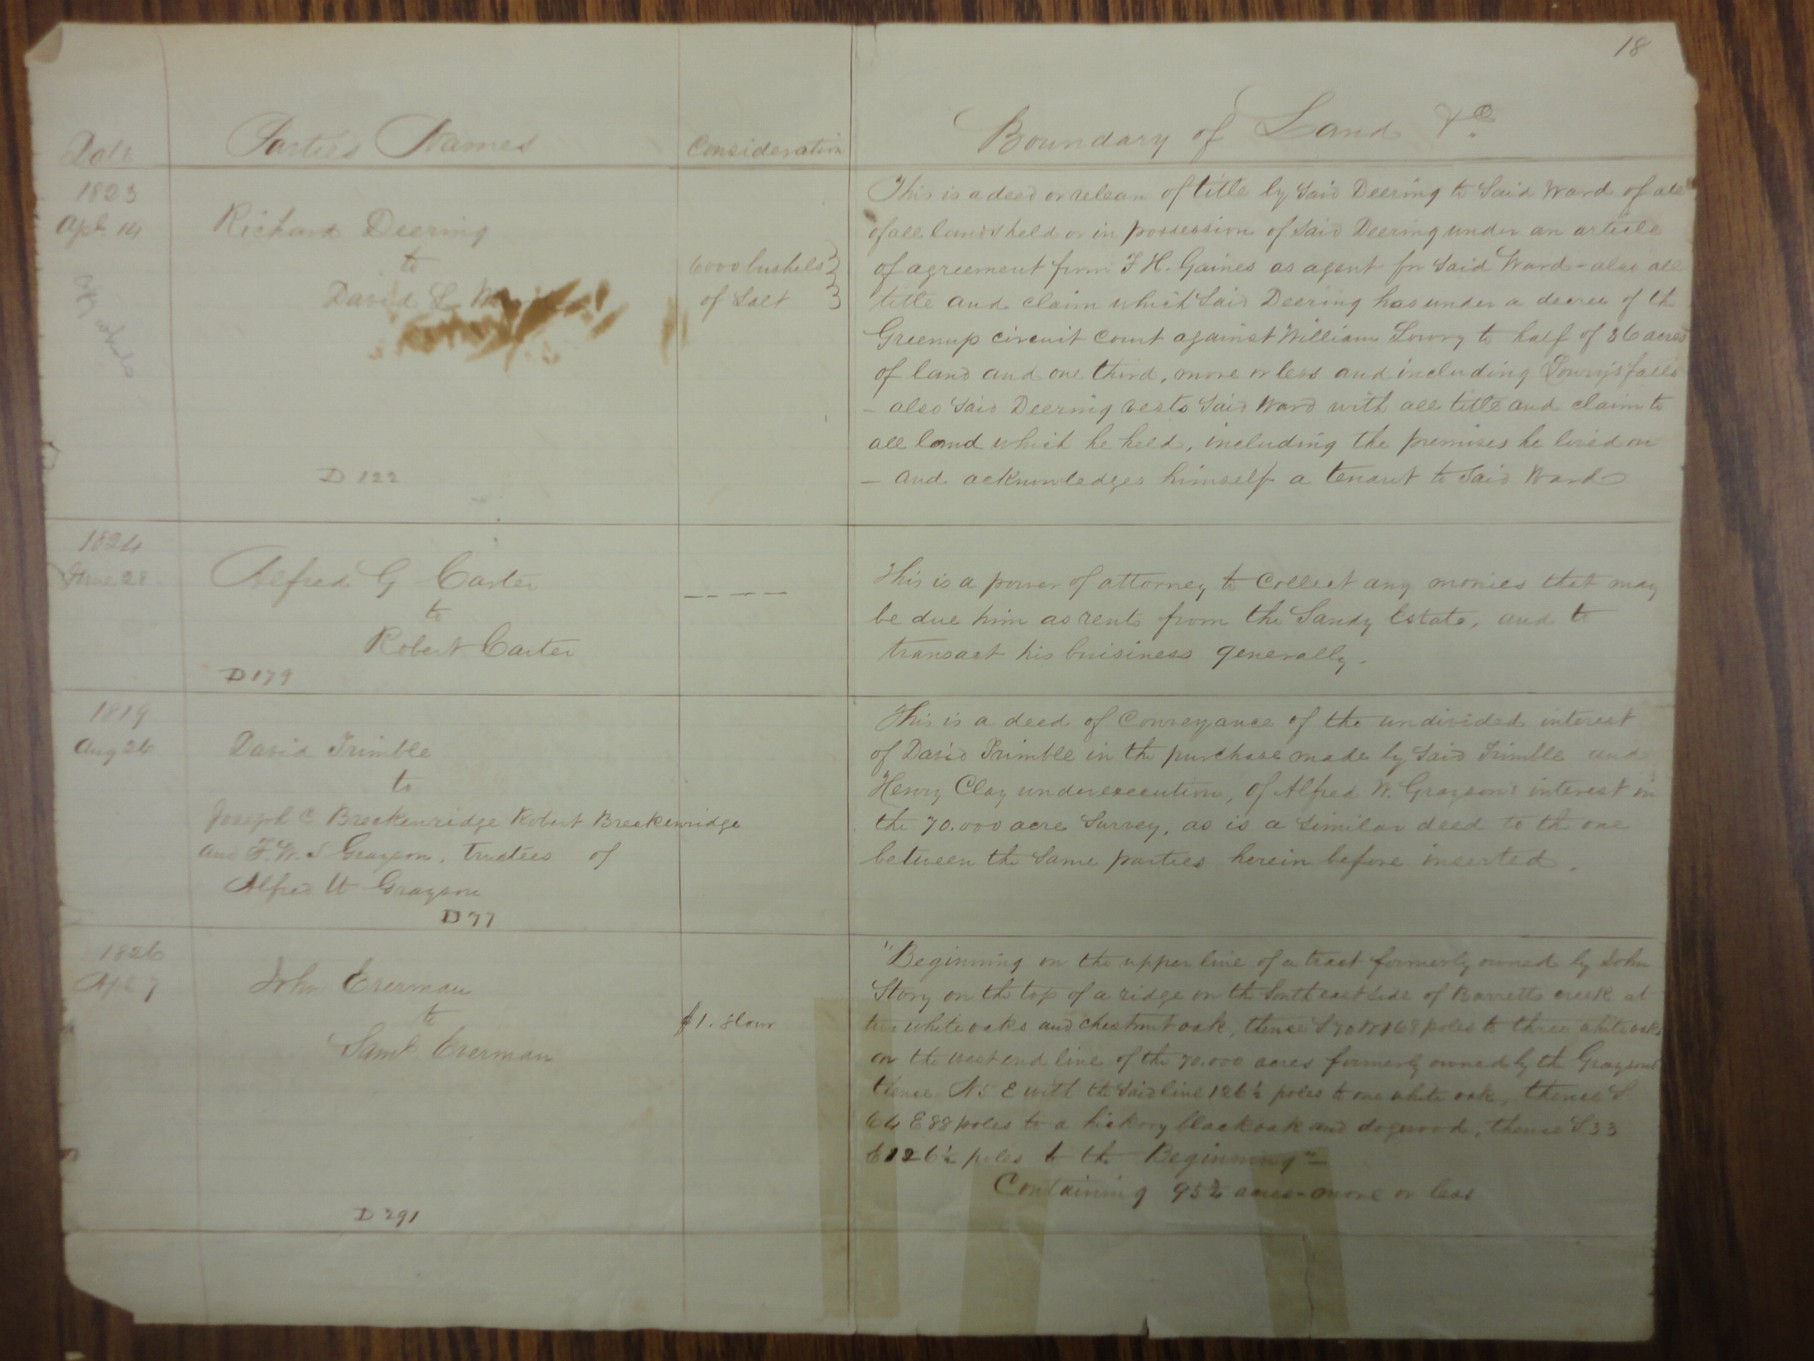 18
Date
Parties Names
Consideration
Boundary of Land &c.
1823
Apl. 14
Richard Deering
to
David L
6000 bushels
of Salt
D 122
This is a deed or release of title by Said Deering to Said Ward of all
of all lands held or in possession of Said Deering under an article
of agreement from F H. Gaines as agent for Said Ward - also all
title and claim which Said Deering has under a decree of the
Greenup circuit court against William Lowry to half of 36 acres
of land and one third, more or less and including Lowry's falls
- also Said Deering vests Said Ward with all title and claim to
all land which he held, including the premises he lived on
- and acknowledges himself a tenant to Said Ward
1824
June 28
Alfred G Carter
to
Robert Carter
D 179
This is a power of attorney to Collect any monies that may
be due him as rents from the Sandy Estate, and to
transact his buisiness generally.
1819
Aug 26
David Trimble
to
Joseph C Breckenridge Robert Breckenridge
and F. W. S Grayson, trustees of
Alfred W Grayson
D 77
This is a deed of Conveyance of the undivided interest
of David Trimble in the purchase made by Said Trimble and
Henry Clay under execution, of Alfred W. Grayson's interest in
the 70.000 acre Survey, as is a Similar deed to the one
between the Same parties herein before inserted.
1826
Apl 7
John Everman
to
Saml Everman
$1.
D 291
"Beginning on the upper line of a tract formerly owned by John
Story on the top of a ridge on the South east side of Barretts creek at
two white oaks and chestnut oak, thence S 70 W 168 poles to three white oaks
on the west end line of the 70.000 acres formerly owned by the Graysons
thence N 5 E with the Said line 126½ poles to one white oak, thence S
64 E 88 poles to a hickory black oak and dogwood, thence S 33
E 126½ poles to the Beginning"
Containing 95½ acres - more or less